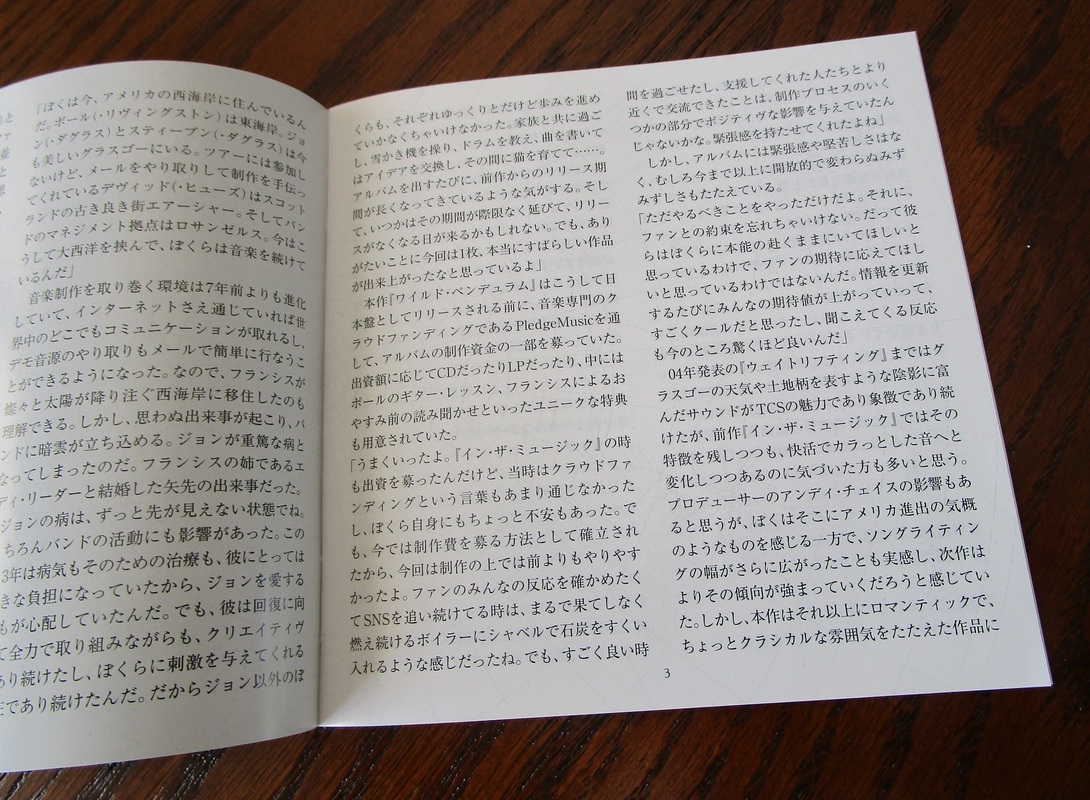 「ぼくは今、アメリカの西海岸に住んでいるん
だ。ポール(・リヴィングストン)は東海岸。ジョ
ン(・ダグラス)とスティーブン(・ダグラス)は今
も美しいグラスゴーにいる。ツアーには参加し
ないけど、メールをやり取りして制作を手伝っ
てくれているデヴィッド(・ヒューズ)はスコット
ランドの古き良き街エアーシャー。そしてバン
ドのマネジメント拠点はロサンゼルス。今はこ
うして大西洋を挟んで、ぼくらは音楽を続けて
いるんだ」
音楽制作を取り巻く環境は7年前よりも進化
していて、インターネットさえ通じていれば世
界中のどこでもコミュニケーションが取れるし、
デモ音源のやり取りもメールで簡単に行なうこ
とができるようになった。なので、フランシスが
燦々と太陽が降り注ぐ西海岸に移住したのも
理解できる。しかし、思わぬ出来事が起こり、バ
ンドに暗雲が立ち込める。ジョンが重篤な病と
なってしまったのだ。フランシスの姉であるエ
ディ・リーダーと結婚した矢先の出来事だった。
ジョンの病は、ずっと先が見えない状態でね。
ちろんバンドの活動にも影響があった。この
3年は病気もそのための治療も、彼にとっては
きな負担になっていたから、ジョンを愛する
もが心配していたんだ。でも、彼は回復に向
て全力で取り組みながらも、クリエイティヴ
あり続けたし、ぼくらに刺激を与えてくれる
在であり続けたんだ。だからジョン以外のぼ
くらも、それぞれゆっくりとだけど歩みを進め
ていかなくちゃいけなかった。家族と共に過ご
し、雪かき機を操り、ドラムを教え、曲を書いて
はアイデアを交換し、その間に猫を育てて……。
アルバムを出すたびに、前作からのリリース期
間が長くなってきているような気がする。そし
て、いつかはその期間が際限なく延びて、リリー
スがなくなる日が来るかもしれない。でも、あり
がたいことに今回は1枚、本当にすばらしい作品
が出来上がったなと思っているよ」
本作『ワイルド・ペンデュラム』はこうして日
本盤としてリリースされる前に、音楽専門のク
ラウドファンディングであるPledgeMusicを通
して、アルバムの制作資金の一部を募っていた。
出資額に応じてCDだったりLPだったり、中には
ポールのギター・レッスン、フランシスによるお
やすみ前の読み聞かせといったユニークな特典
も用意されていた。
「うまくいったよ。『イン・ザ・ミュージック』の時
も出資を募ったんだけど、当時はクラウドファ
ンディングという言葉もあまり通じなかった
し、ぼくら自身にもちょっと不安もあった。で
も、今では制作費を募る方法として確立され
たから、今回は制作の上では前よりもやりやす
かったよ。ファンのみんなの反応を確かめたく
てSNSを追い続けてる時は、まるで果てしなく
燃え続けるボイラーにシャベルで石炭をすくい
入れるような感じだったね。でも、すごく良い時
間を過ごせたし、支援してくれた人たちとより
近くで交流できたことは、制作プロセスのいく
つかの部分でポジティヴな影響を与えていたん
じゃないかな。緊張感を持たせてくれたよね」
しかし、アルバムには緊張感や堅苦しさはな
く、むしろ今まで以上に開放的で変わらぬみず
みずしさもたたえている。
「ただやるべきことをやっただけだよ。それに、
ファンとの約束を忘れちゃいけない。だって彼
らはぼくらに本能の赴くままにいてほしいと
思っているわけで、ファンの期待に応えてほし
いと思っているわけではないんだ。情報を更新
するたびにみんなの期待値が上がっていって、
すごくクールだと思ったし、聞こえてくる反応
も今のところ驚くほど良いんだ」
04年発表の『ウェイトリフティング』まではグ
ラスゴーの天気や土地柄を表すような陰影に富
んだサウンドがTCSの魅力であり象徴であり続
けたが、前作『イン・ザ・ミュージック』ではその
特徴を残しつつも、快活でカラっとした音へと
変化しつつあるのに気づいた方も多いと思う。
プロデューサーのアンディ・チェイスの影響もあ
ると思うが、ぼくはそこにアメリカ進出の気概
のようなものを感じる一方で、ソングライティン
グの幅がさらに広がったことも実感し、次作は
よりその傾向が強まっていくだろうと感じてい
た。しかし、本作はそれ以上にロマンティックで、
ちょっとクラシカルな雰囲気をたたえた作品に
3